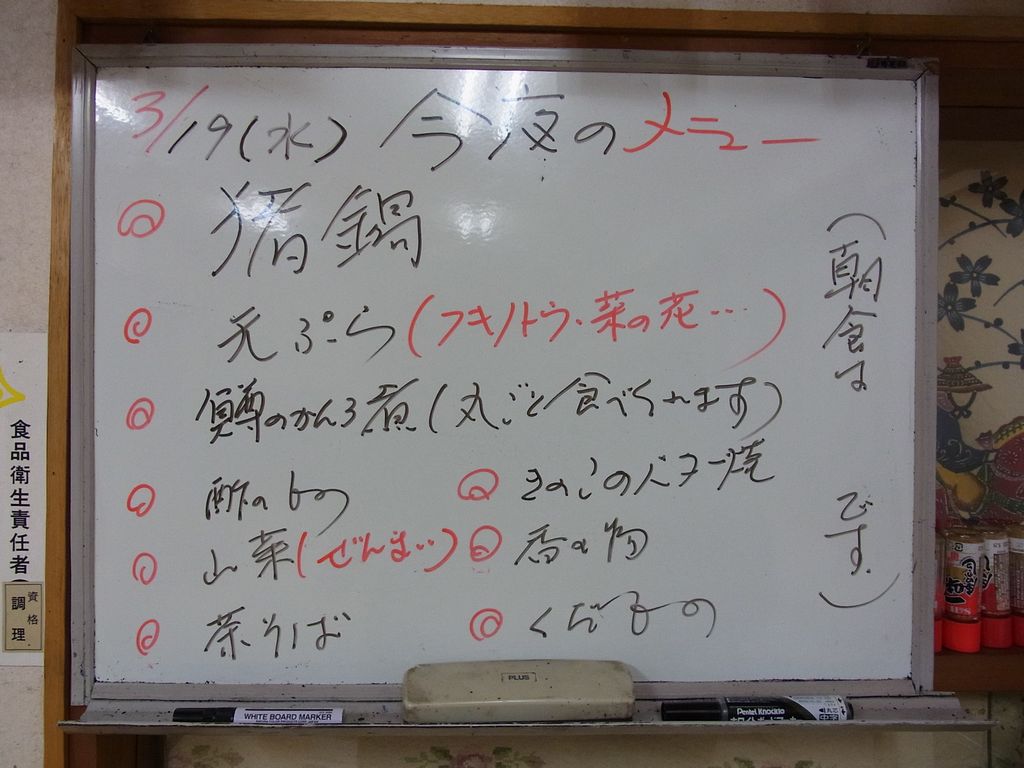 3/19(水) 今夜のメニュー
猪鍋
天ぷら(フキノトウ・菜の花…)
鱒のかんろ煮(丸ごと食べられます)
酢のもの
きのこのバター焼
山菜(ぜんまい)
香の物
茶そば
くだもの
(朝食は
です。)
食品衛生責任者
資格
調理
PLUS
WHITE BOARD MARKER
Pentel Knockle
ホワイトボードマーカー
中字